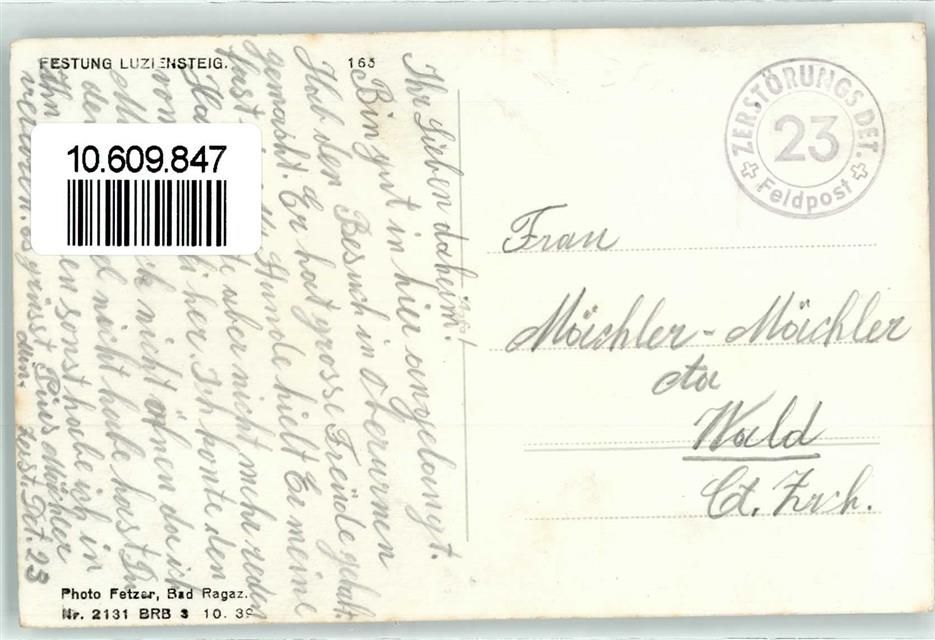 FESTUNG LUZIENSTEIG.
163
Ihr Lieben daheim!
Bin gut in hier angelangt.
Hab den Besuch in Oberurnen
gemacht. Er hat grosse Freüde gehabt
Fast Stunde hielt Er meine
aber nicht mehr reden
her. Ich konte den
von nicht öfnen da ich
nicht habe hast Du
den sonst habe ich in
Ihn
verloren. Es grüsst Pius Mächler
Mun. Zerst. Det. 23
10.609.847
ZERSTÖRUNGS DET.
23
Feldpost
Frau
Mächler-Mächler
Wald
Ct. Zrch.
Photo Fetzer, Bad Ragaz.
Nr. 2131 BRB 3 10. 39